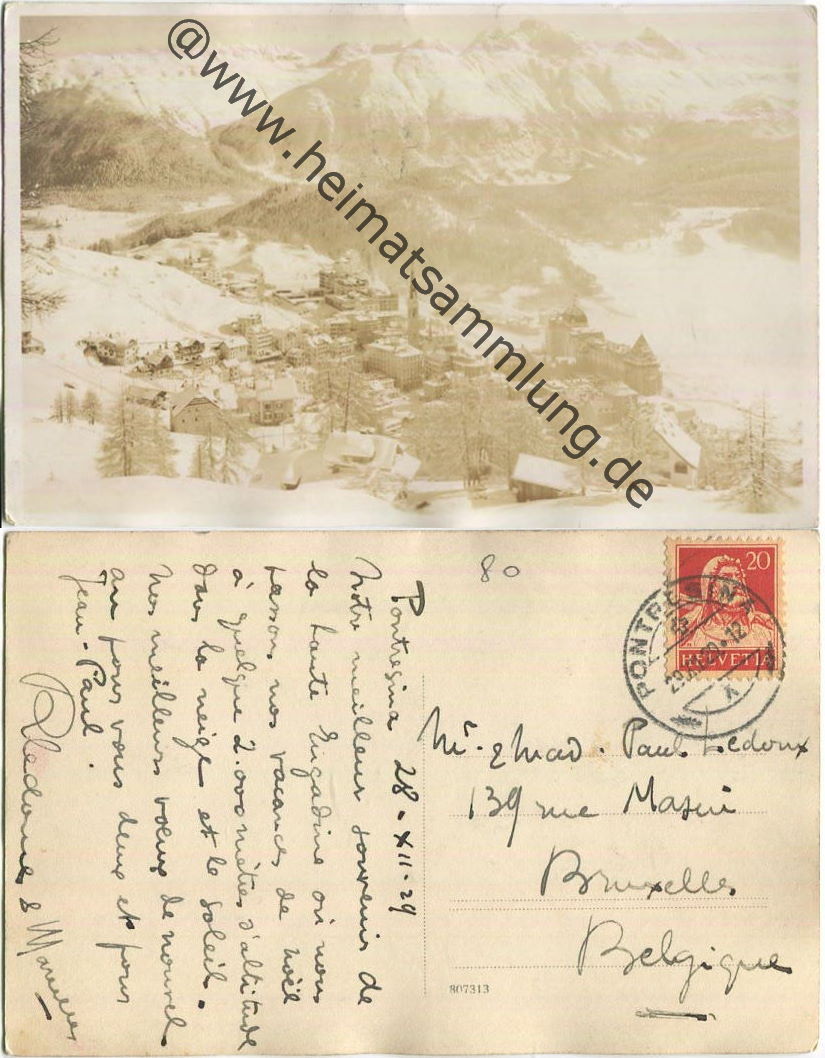 @www.heimatsammlung.de
80
20
HELVETIA
PONTRESINA
Pontresina 28-XII-29
Notre meilleur souvenir de
la haute Engadine où nous
passons nos vacances de Noël
à quelque 2.000 mètres d'altitude
dans la neige et le soleil.
Nos meilleurs vœux de nouvel
an pour vous deux et pour
Jean-Paul.
Mr. & Mad. Paul Ledoux
139 rue
Bruxelles
Belgique
807313